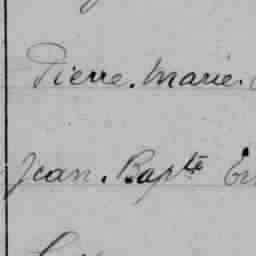 Pierre. Marie.
Jean. Bapte